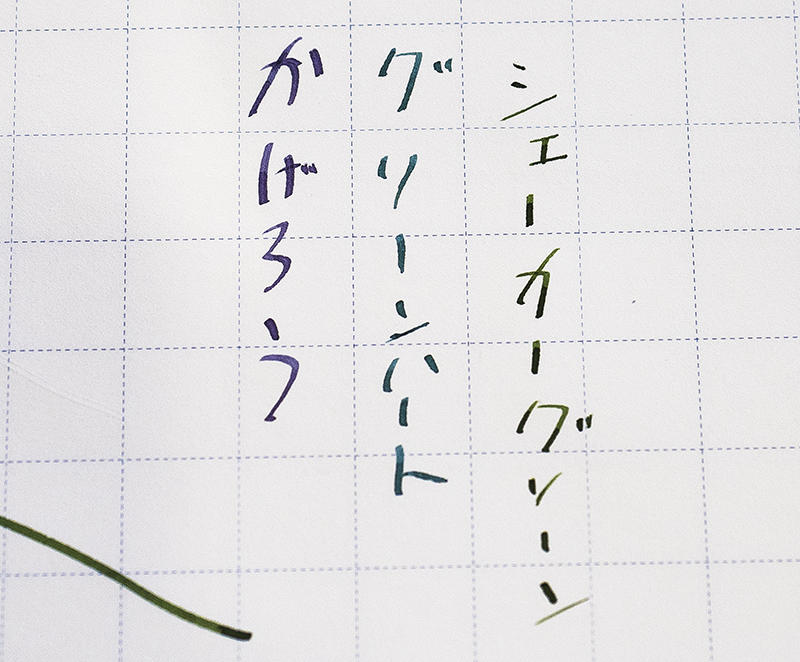 シェーカーグリーン
グリーンハート
かげろう